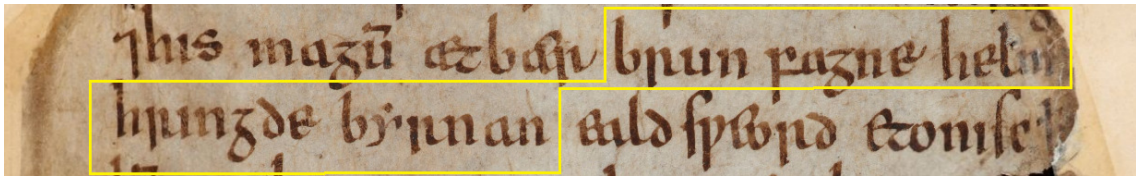 ⁊his magū ætbær brun fagne helm
hringde byrnan eald sƿeord etonisc